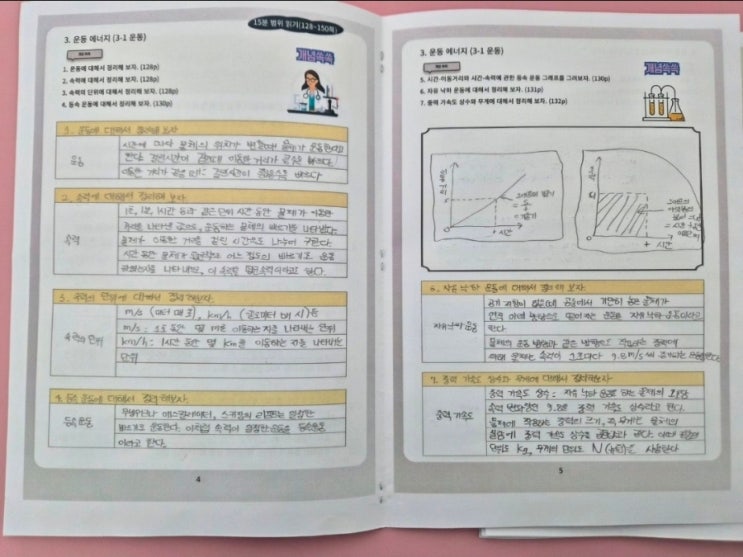 15분 범위 읽기(128~150쪽)
3. 운동 에너지 (3-1 운동)
개념쏙쏙
1. 운동에 대해서 정리해 보자. (128p)
2. 속력에 대해서 정리해 보자. (128p)
3. 속력의 단위에 대해서 정리해 보자. (128p)
4. 등속 운동에 대해서 정리해 보자. (130p)
1. 운동에 대해서 정리해 보자
시간에 따라 물체의 위치가 변할때 물체가 운동한다고
한다. 걸린시간이 이동한 거리가
운동
이동한 거리가 같을 때는 걸린시간이 빠르다
2. 속력에 대해서 정리해 보자
1초, 1분, 1시간 등과 같은 단위 시간 동안 물체가 이동한
거리를 나타낸 값으로, 운동하는 물체의 빠르기를 나타낸다.
속력
물체가 이동한 거리를 걸린 시간으로 나누어 구한다.
시간 동안 물체가 어느 정도의 빠르기로 운동
나타내고, 이 속력을 평균속력이라고 한다.
3. 속력의 단위에 대해서 정리해보자.
m/s (미터 매 초), km/h (킬로미터 매 시) 등
속력의 단위
m/s : 1초 동안 몇 m를 이동하는지를 나타내는 단위
km/h : 1시간 동안 몇 km를 이동하는 지를 나타내는
단위
4. 등속 운동에 대해서 정리해보자.
무빙워크나 에스컬레이터, 스키장의 리프트는 일정한
등속운동
빠르기로 운동한다. 이처럼 속력이 일정한 운동을 등속운동
이라고 한다.
4
3. 운동 에너지 (3-1 운동)
개념쏙쏙
5. 시간-이동거리와 시간-속력에 관한 등속 운동 그래프를 그려보자. (130p)
6. 자유 낙하 운동에 대해서 정리해 보자. (131p)
7. 중력 가속도 상수와 무게에 대해서 정리해 보자. (132p)
이동 거리
0
시간
그래프의 기울기
속력
0
시간
그래프의
6. 자유 낙하 운동에 대해서 정리해 보자.
공기 저항이 없을때 공중에서 가만히 놓은 물체가
자유낙하 운동
연직 아래 방향으로 떨어지는 운동을 자유 낙하 운동이라고
한다.
물체의 운동 방향과 같은 방향으로 작용하는 중력에
의해 물체는 속력이 1초마다 9.8m/s씩 증가하는 운동한다
7. 중력 가속도 상수와 무게에 대해서 정리해보자
중력 가속도 상수 : 자유 낙하 운동을 하는 물체의 1초당
속력 변화량인 9.8을 중력 가속도 상수라고 한다.
중력 가속도
물체에 작용하는 중력의 크기, 즉 무게는 물체의
질량에 중력 가속도 상수를
단위는 kg, 무게의 단위는 N(뉴턴)을 사용한다
5